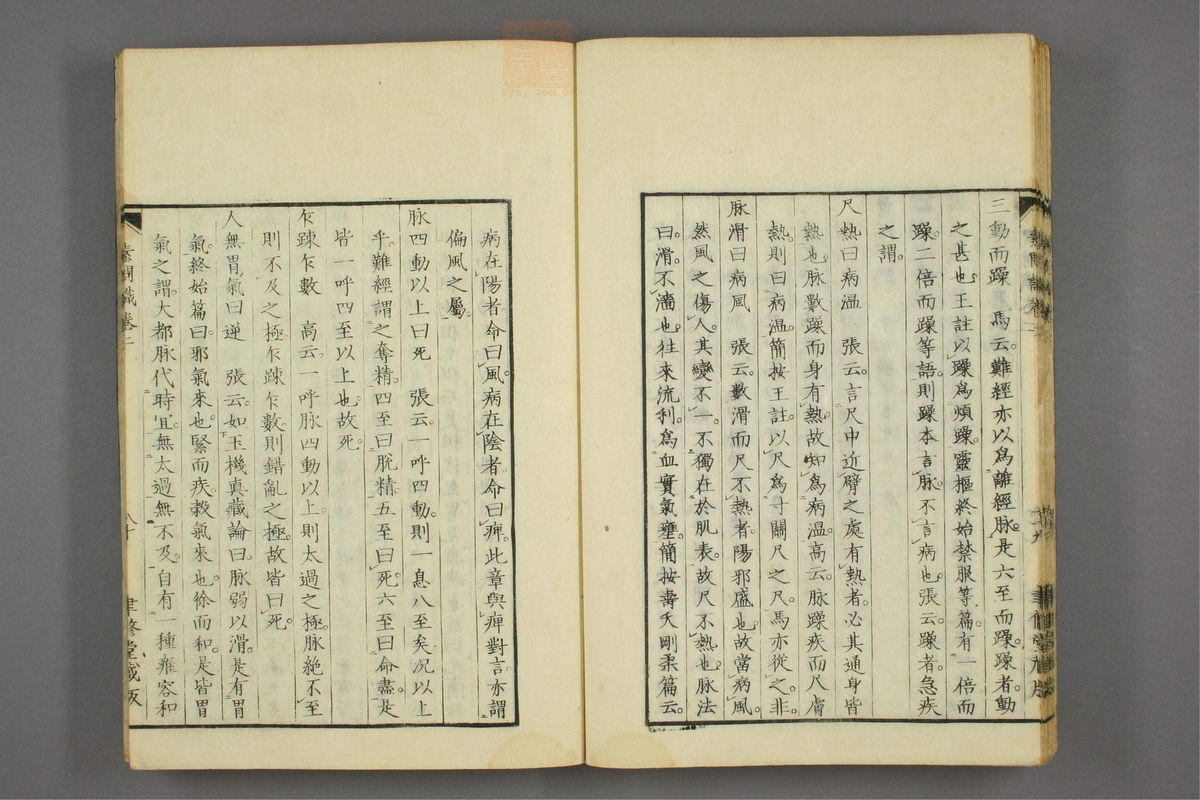 三動而躁　馬云。難經亦以爲離經脉。是六至而躁。躁者。動
之甚也。王註以躁爲煩躁。靈樞終始禁服等篇。有一倍而
躁。二倍而躁等語。則躁本言脉。不言病也。張云。躁者。急疾
之謂。
尺熱曰病温　張云。言尺中近臂之處有熱者。必其通身皆
熱也。脉數躁而身有熱。故知爲病温。高云。脉躁疾而尺膚
熱。則曰病温。簡按王註。以尺爲寸關尺之尺。馬亦從之。非。
脉滑曰病風　張云。數滑而尺不熱者。陽邪盛也。故當病風。
然風之傷人。其變不一。不獨在於肌表。故尺不熱也。脉法
曰。滑。不濇也。往來流利。爲血實氣壅。簡按壽夭剛柔篇云。
病在陽者。命曰風。病在陰者。命曰痺。此章與痺對言。亦謂
偏風之屬。
脉四動以上曰死　張云。一呼四動。則一息八至矣。况以上
乎。難經謂之奪精。四至曰脫精。五至曰死。六至曰命盡。是
皆一呼四至以上也。故死。
乍踈乍數　高云。一呼脉四動以上。則太過之極。脉絶不至。
則不及之極。乍踈乍數。則錯亂之極。故皆曰死。
人無胃氣曰逆　張云。如玉機真藏論曰。脉弱以滑。是有胃
氣。終始篇曰。邪氣來也。緊而疾。穀氣來也。徐而和。是皆胃
氣之謂。大都脉代時宜。無太過無不及。自有一種雍容和
素問識卷二
八十
聿修堂藏版